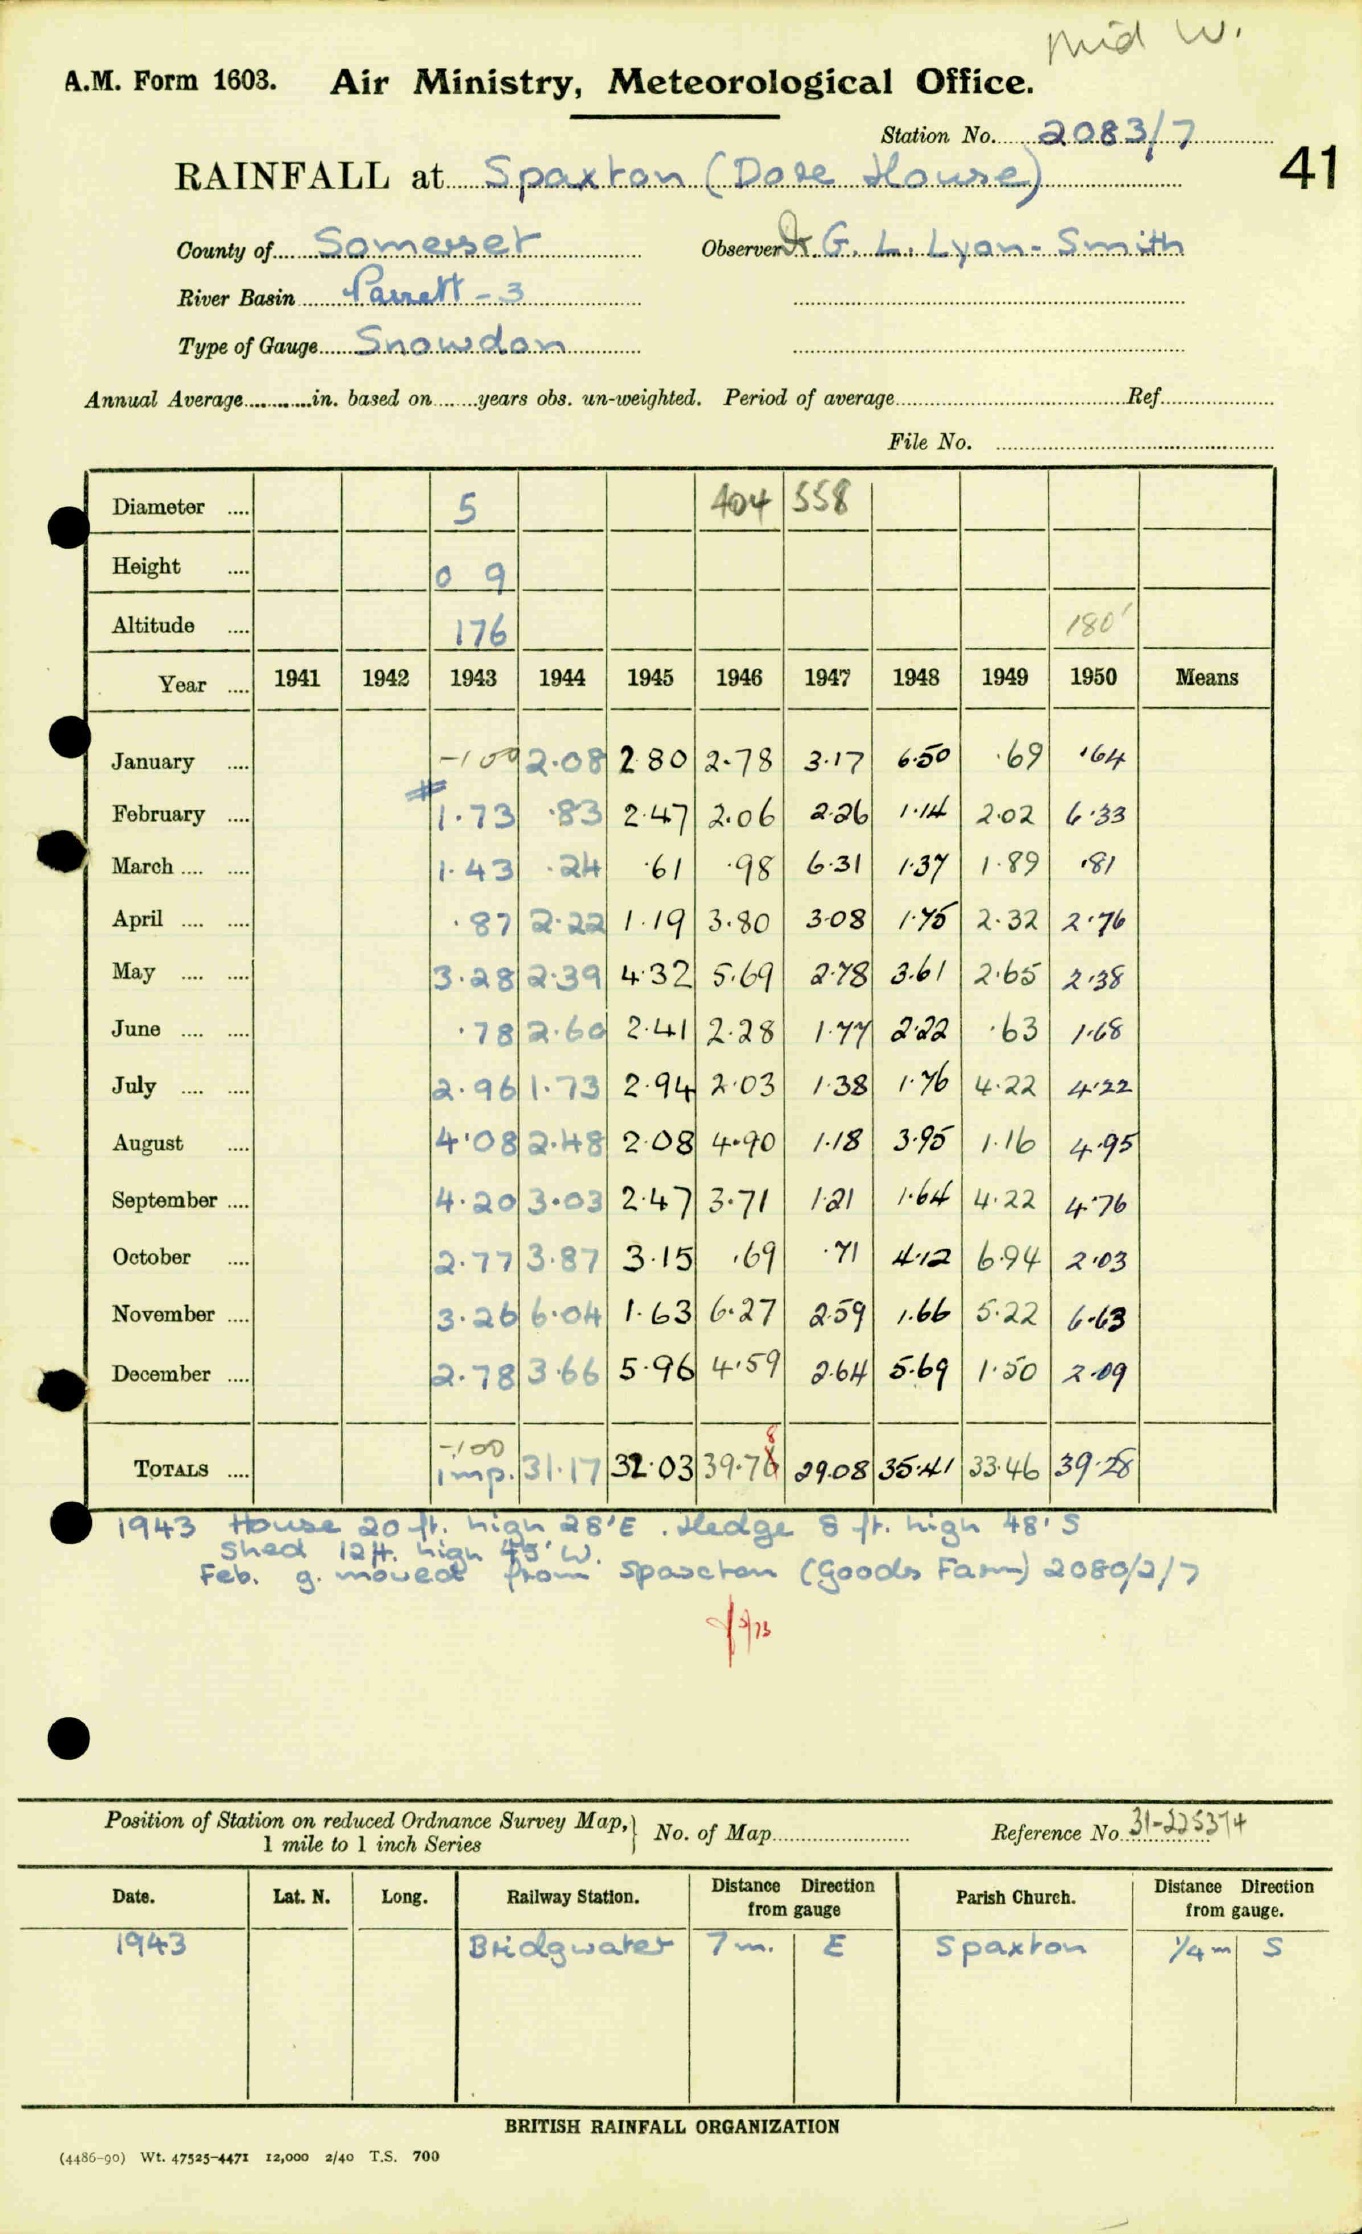 Mid W.
A.M. Form 1603. Air Ministry, Meteorological Office.
Station No. 2083/7
41
RAINFALL at Spaxton (Dore House)
County of Somerset Observer Dr G. L. Lyon-Smith
River Basin Parrett - 3
Type of Gauge Snowdon
Annual Average in. based on years obs. un-weighted. Period of average Ref.
File No.
Diameter 5 404 558
Height 0 9
Altitude 176 180'
Year 1941 1942 1943 1944 1945 1946 1947 1948 1949 1950 Means
January -100 2.08 2.80 2.78 3.17 6.50 .69 .64
February # 1.73 .83 2.47 2.06 2.26 1.14 2.02 6.33
March 1.43 .24 .61 .98 6.31 1.37 1.89 .81
April .87 2.22 1.19 3.80 3.08 1.75 2.32 2.76
May 3.28 2.39 4.32 5.69 2.78 3.61 2.65 2.38
June .78 2.60 2.41 2.28 1.77 2.22 .63 1.68
July 2.96 1.73 2.94 2.03 1.38 1.76 4.22 4.22
August 4.08 2.48 2.08 4.90 1.18 3.95 1.16 4.95
September 4.20 3.03 2.47 3.71 1.21 1.64 4.22 4.76
October 2.77 3.87 3.15 .69 .71 4.12 6.94 2.03
November 3.26 6.04 1.63 6.27 2.59 1.66 5.22 6.63
December 2.78 3.66 5.96 4.59 2.64 5.69 1.50 2.09
-.100 8
TOTALS imp. 31.17 32.03 39.76 29.08 35.41 33.46 39.28
1943 House 20 ft. high 28'E. Hedge 8 ft. high 48'S
Shed 12 ft. high 45'W.
Feb. g. moved from Spaxton (Goods Farm) 2080/2/7
Position of Station on reduced Ordnance Survey Map, 1 mile to 1 inch Series No. of Map Reference No 31-225374
Date. Lat. N. Long. Railway Station. Distance Direction from gauge Parish Church. Distance Direction from gauge.
1943 Bridgwater 7 m. E Spaxton 1/4 m S
BRITISH RAINFALL ORGANIZATION
(4486-90) Wt. 47525-4471 12,000 2/40 T.S. 700